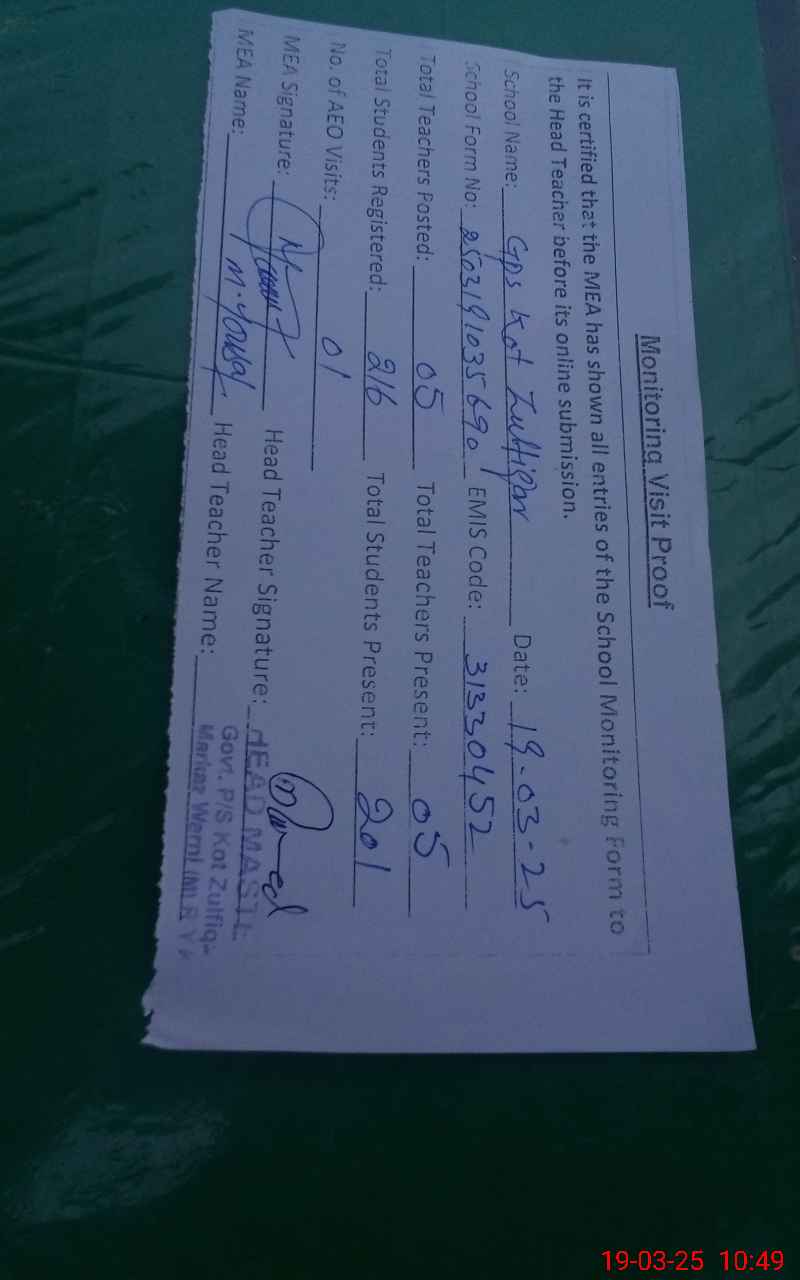 Monitoring Visit Proof
It is certified that the MEA has shown all entries of the School Monitoring Form to
the Head Teacher before its online submission.
School Name: Gps Kot Zulfiqar Date: 19-03-25
School Form No: 250319103569 0 EMIS Code: 31330452
Total Teachers Posted: 05 Total Teachers Present: 05
Total Students Registered: 216 Total Students Present: 201
No. of AEO Visits: 01
MEA Signature: Head Teacher Signature:
MEA Name: M. Yousaf Head Teacher Name:
HEAD MASTE
Govt. P/S Kot Zulfiqa
Markaz
19-03-25 10:49